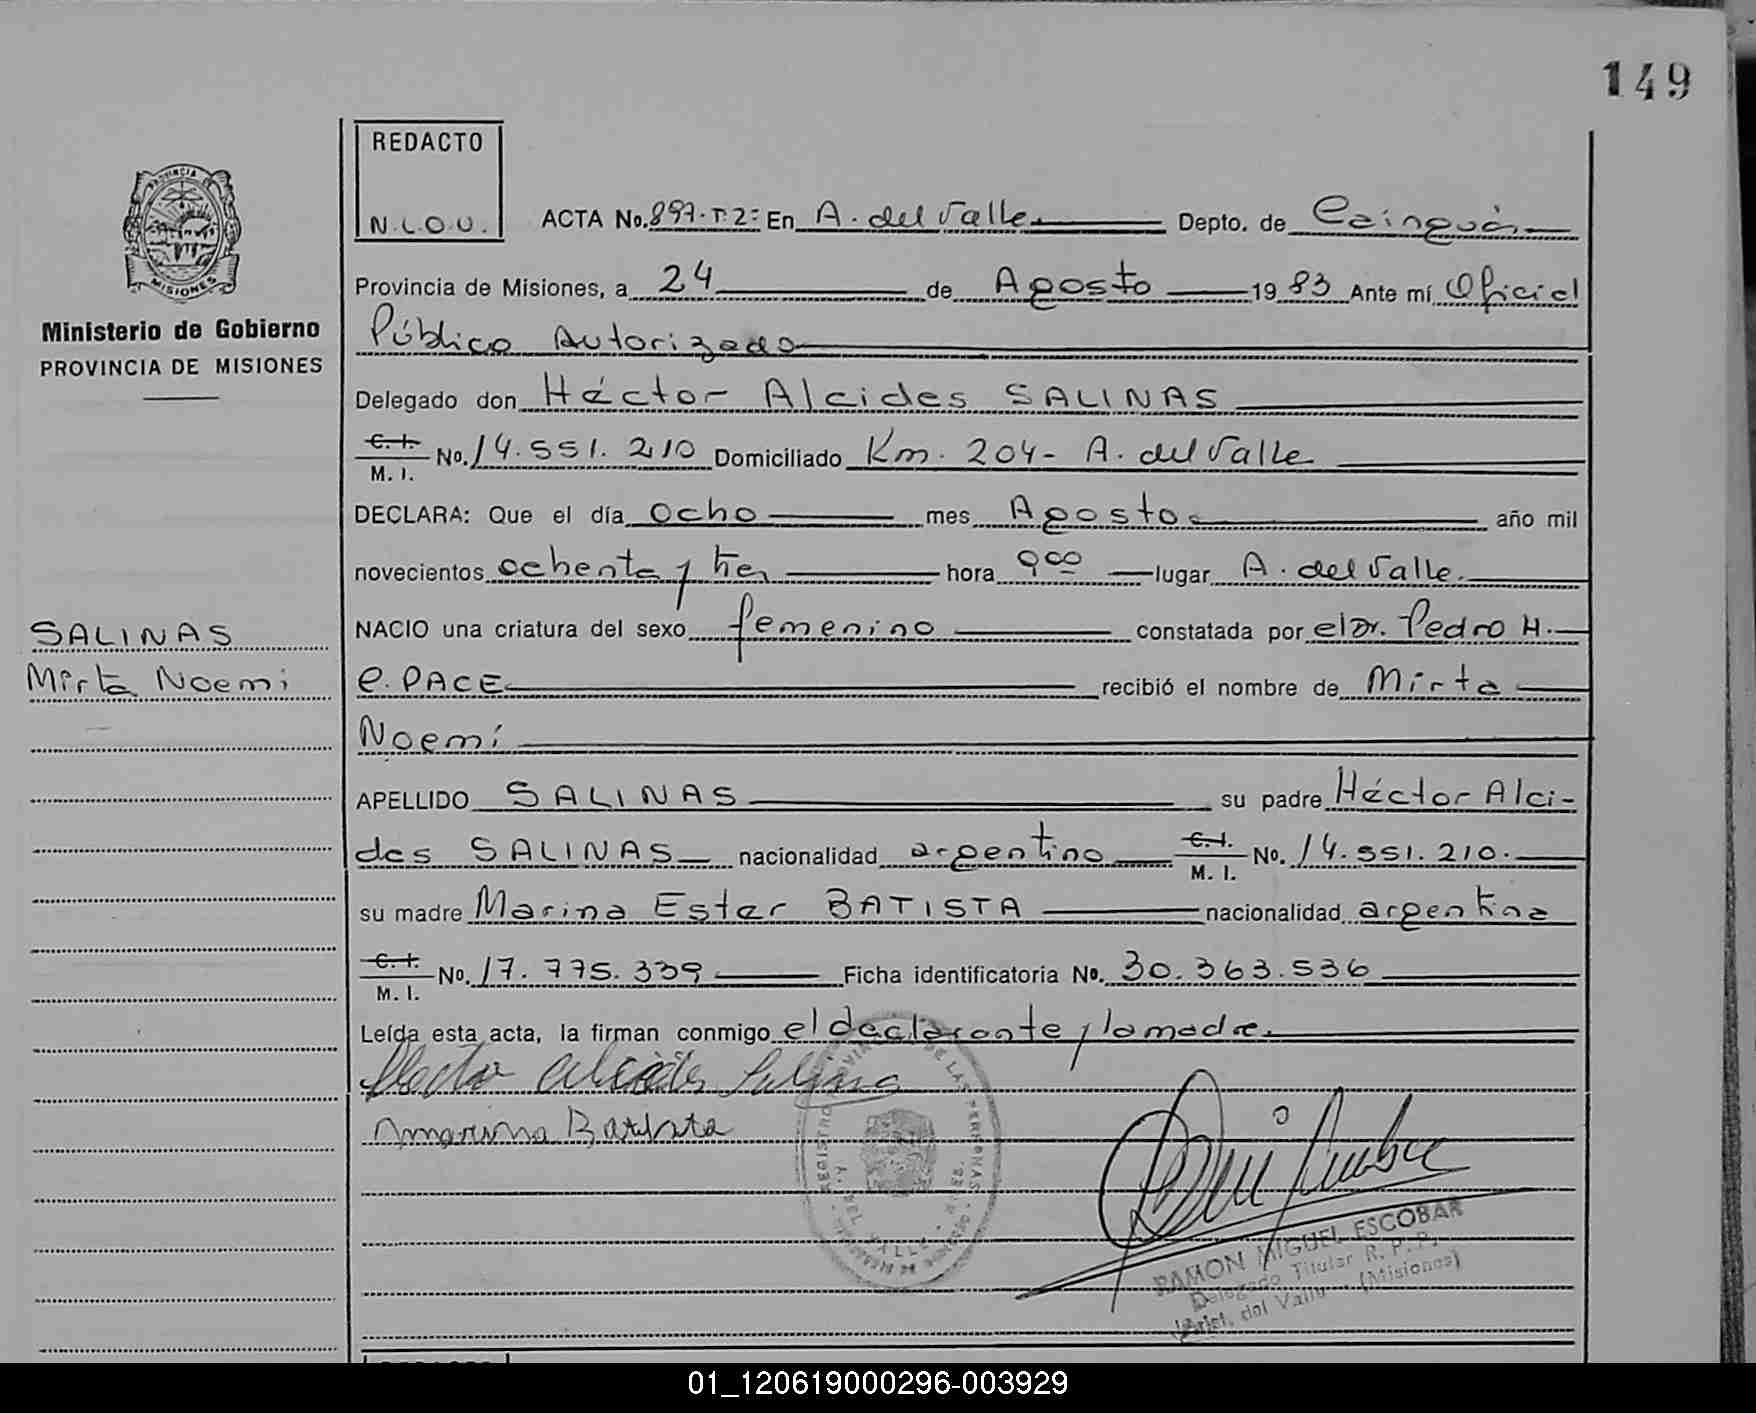 149
REDACTO
N.L.O.U.
ACTA No. 897-T.2: En A. del Valle. Depto. de Cainguás
Provincia de Misiones, a 24 de Agosto 1983 Ante mí Oficial
Público Autorizado
Delegado don Héctor Alcides SALINAS
C. I. M. I. No. 14.551.210 Domiciliado Km. 204- A. del Valle
DECLARA: Que el día ocho mes Agosto. año mil
novecientos ochenta y tres hora 9 00 lugar A. del Valle.
NACIO una criatura del sexo femenino constatada por el Dr. Pedro H.
e. PACE recibió el nombre de Mirta
Noemí
APELLIDO SALINAS su padre Héctor Alci-
des SALINAS nacionalidad argentino C. I. M. I. No. 14.551.210.
su madre Marina Ester BATISTA nacionalidad argentina
C. I. M. I. No. 17.775.339 Ficha identificatoria No. 30.363.536
Leída esta acta, la firman conmigo el declarante y la madre.
Hector Alcides Salinas
Marina Batista
RAMON MIGUEL ESCOBAR
Delegado Titular R. P. P.
Arist. del Valle (Misiones)
PROVINCIA DE MISIONES
Ministerio de Gobierno
PROVINCIA DE MISIONES
SALINAS
Mirta Noemi
01_120619000296-003929